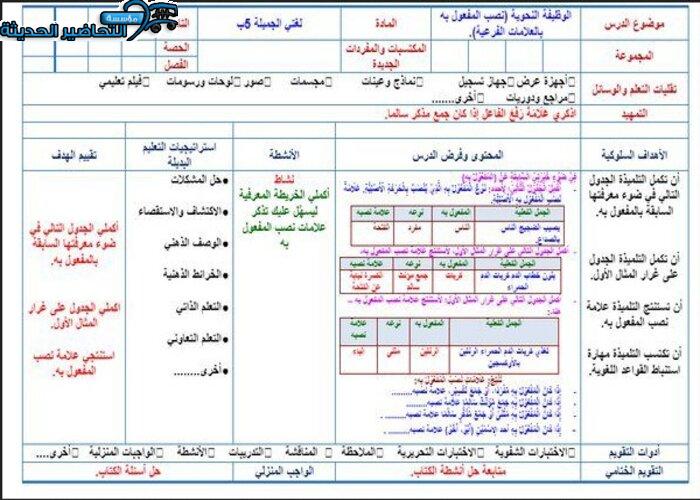 مؤسسة
التحاضير الحديثة
موضوع الدرس
الوظيفة النحوية (نصب المفعول به بالعلامات الفرعية).
المادة
لغتي الجميلة 5ب
المجموعة
المكتسبات والمفردات الجديدة
الحصة
الفصل
تقنيات التعلم والوسائل
أجهزة عرض جهاز تسجيل نماذج وعينات مجسمات صور لوحات ورسومات فيلم تعليمي
مراجع ودوريات أخرى.......
التمهيد
اذكري علامة رفع الفاعل إذا كان جمع مذكر سالما.
الأهداف السلوكية
المحتوى وفرض الدرس
الأنشطة
استراتيجيات التعليم البديلة
تقييم الهدف
أن تكمل التلميذة الجدول التالي في ضوء معرفتها السابقة بالمفعول به.
أن تكمل التلميذة الجدول على غرار المثال الأول.
أن تستنتج التلميذة علامة نصب المفعول به.
أن تكتسب التلميذة مهارة استنباط القواعد اللغوية.
الجمل الفعلية
المفعول به
نوعه
علامة نصبه
يصيب الضجيج الناس بالصداع.
الناس
مفرد
الفتحة
الجمل الفعلية
المفعول به
نوعه
علامة نصبه
يلون خضاب الدم كريات الدم الحمراء
كريات
جمع مؤنث سالم
الكسرة نيابة عن الفتحة
الجمل الفعلية
المفعول به
نوعه
علامة نصبه
تغذي كريات الدم الحمراء الرئتين بالأوكسجين
الرئتين
مثنى
الياء
نشاط
أكملي الخريطة المعرفية ليسهل عليك تذكر علامات نصب المفعول به
حل المشكلات
الاكتشاف والاستقصاء
الوصف الذهني
الخرائط الذهنية
التعلم الذاتي
التعلم التعاوني
أخرى........
أكملي الجدول التالي في ضوء معرفتها السابقة بالمفعول به.
اكملي الجدول على غرار المثال الأول.
استنتجي علامة نصب المفعول به.
أدوات التقويم
الاختبارات الشفوية الاختبارات التحريرية الملاحظة المناقشة التدريبات الأنشطة الواجبات المنزلية أخرى....
التقويم الختامي
متابعة حل أنشطة الكتاب.
الواجب المنزلي
حل أسئلة الكتاب.